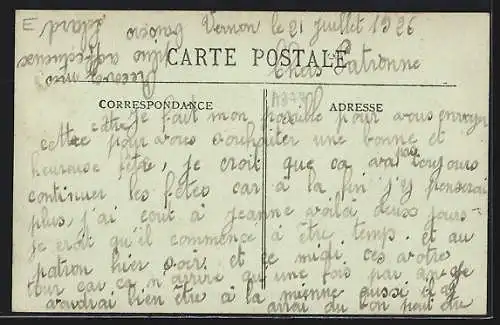 E
Vernon le 21 Juillet 1926
CARTE POSTALE
Chers Patronne
CORRESPONDANCE
ADRESSE
Je fait mon possible pour vous envoyer
cette carte pour vous souhaiter une bonne et
heureuse fête, je croit que ca va pas toujours
continuer les fêtes car à la fin j'y penserai
plus, j'ai écrit à Jeanne voilà deux jours
je croit qu'il commence à être temps. et au
patron hier soir. et ce midi, ces votre
tour car ca n'arrive qu'une fois par an je
voudrai bien être à la mienne aussi
aurai du bon peut être
Recevez mes
plus affectueuse